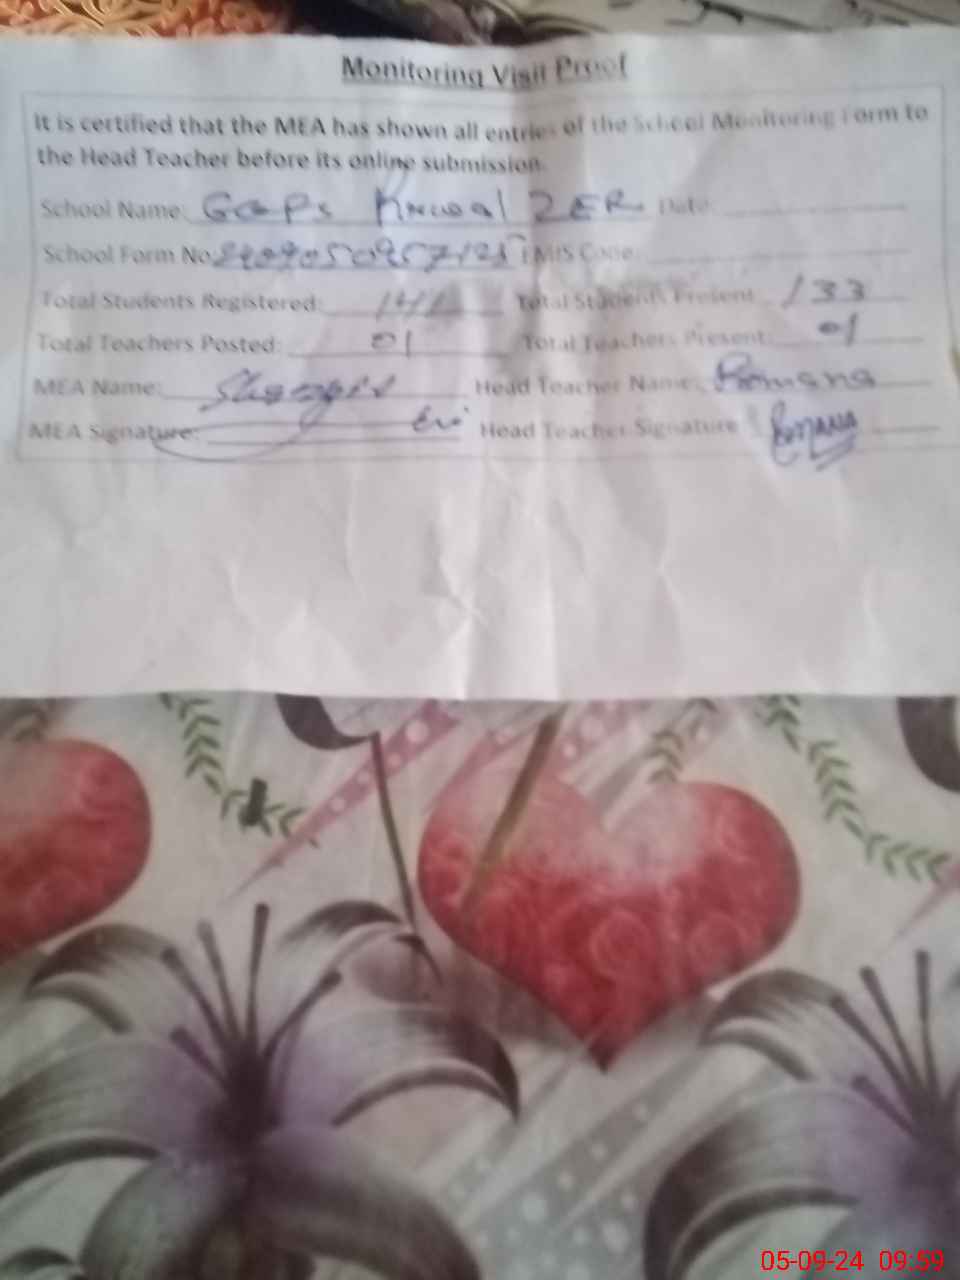 Monitoring Visit Proof
It is certified that the MEA has shown all entries of the School Monitoring Form to
the Head Teacher before its online submission.
School Name: GGPS ZER Date:
School Form No EMIS Code:
Total Students Registered: 141 Total Students Present 133
Total Teachers Posted: 01 Total Teachers Present: 01
MEA Name: Head Teacher Name: Romana
MEA Signature: Head Teacher Signature ROMANA
05-09-24 09:59